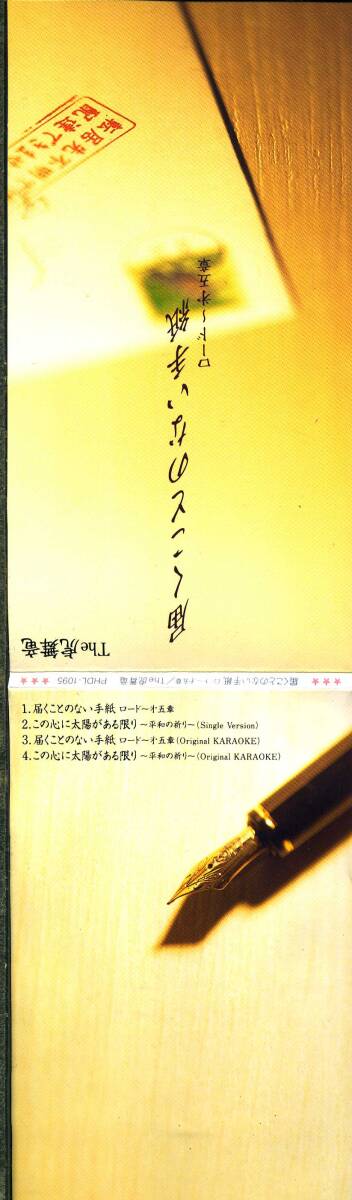 転居先不明で
配達できませ
届くことのない手紙
ロード〜才五章
The虎舞竜
★★★ 届くことのない手紙 ロード〜才五章/The虎舞竜 PHDL-1095 ★★★
1.届くことのない手紙 ロード〜才五章
2.この心に太陽がある限り 〜平和の祈り〜(Single Version)
3.届くことのない手紙 ロード〜才五章(Original KARAOKE)
4.この心に太陽がある限り 〜平和の祈り〜(Original KARAOKE)